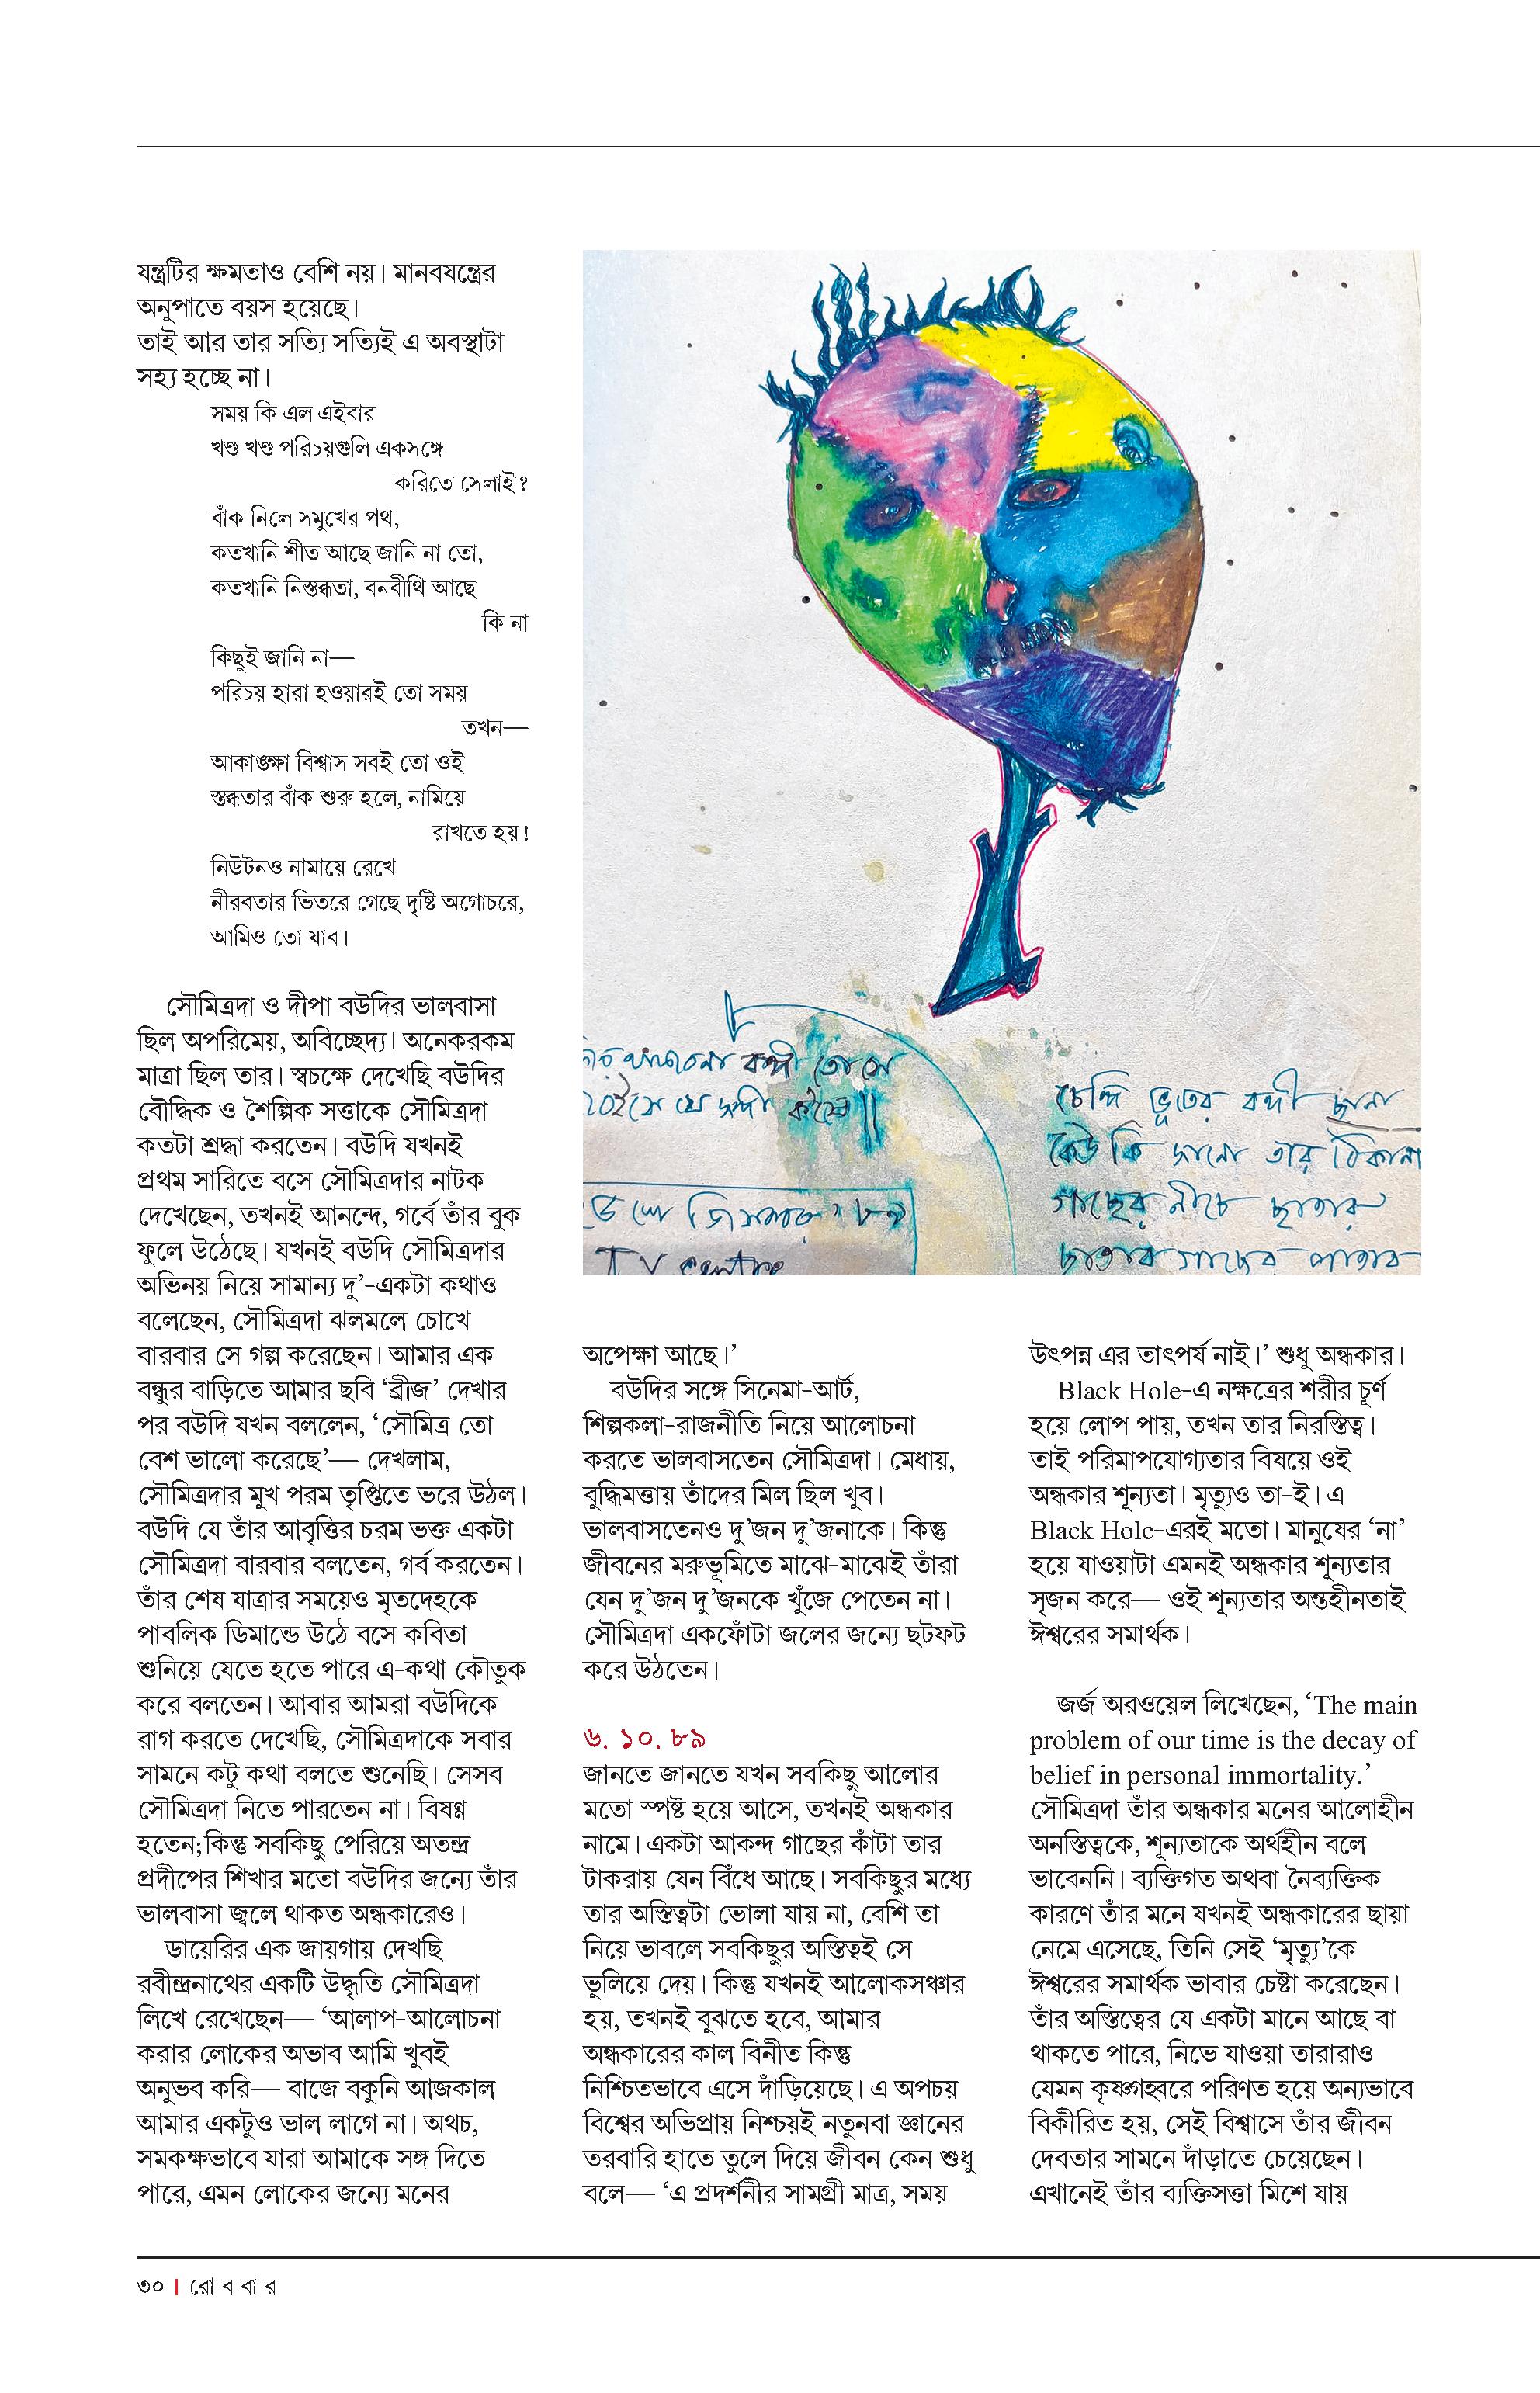 যন্ত্রটির ক্ষমতাও বেশি নয়। মানবযন্ত্রের
অনুপাতে বয়স হয়েছে।
তাই আর তার সত্যি সত্যিই এ অবস্থাটা
সহ্য হচ্ছে না।
সময় কি এল এইবার
খণ্ড খণ্ড পরিচয়গুলি একসঙ্গে
করিতে সেলাই?
বাঁক নিলে সমুখের পথ,
কতখানি শীত আছে জানি না তো,
কতখানি নিস্তব্ধতা, বনবীথি আছে
কি না
কিছুই জানি না—
পরিচয় হারা হওয়ারই তো সময়
তখন—
আকাঙ্ক্ষা বিশ্বাস সবই তো ওই
স্তব্ধতার বাঁক শুরু হলে, নামিয়ে
রাখতে হয়!
নিউটনও নামায়ে রেখে
নীরবতার ভিতরে গেছে দৃষ্টি অগোচরে,
আমিও তো যাব।
সৌমিত্রদা ও দীপা বউদির ভালবাসা
ছিল অপরিমেয়, অবিচ্ছেদ্য। অনেকরকম
মাত্রা ছিল তার। স্বচক্ষে দেখেছি বউদির
বৌদ্ধিক ও শৈল্পিক সত্তাকে সৌমিত্রদা
কতটা শ্রদ্ধা করতেন। বউদি যখনই
প্রথম সারিতে বসে সৌমিত্রদার নাটক
দেখেছেন, তখনই আনন্দে, গর্বে তাঁর বুক
ফুলে উঠেছে। যখনই বউদি সৌমিত্রদার
অভিনয় নিয়ে সামান্য দু’-একটা কথাও
বলেছেন, সৌমিত্রদা ঝলমলে চোখে
বারবার সে গল্প করেছেন। আমার এক
বন্ধুর বাড়িতে আমার ছবি ‘ব্রীজ’ দেখার
পর বউদি যখন বললেন, ‘সৌমিত্র তো
বেশ ভালো করেছে’— দেখলাম,
সৌমিত্রদার মুখ পরম তৃপ্তিতে ভরে উঠল।
বউদি যে তাঁর আবৃত্তির চরম ভক্ত একটা
সৌমিত্রদা বারবার বলতেন, গর্ব করতেন।
তাঁর শেষ যাত্রার সময়েও মৃতদেহকে
পাবলিক ডিমান্ডে উঠে বসে কবিতা
শুনিয়ে যেতে হতে পারে এ-কথা কৌতুক
করে বলতেন। আবার আমরা বউদিকে
রাগ করতে দেখেছি, সৌমিত্রদাকে সবার
সামনে কটু কথা বলতে শুনেছি। সেসব
সৌমিত্রদা নিতে পারতেন না। বিষণ্ণ
হতেন;কিন্তু সবকিছু পেরিয়ে অতন্দ্র
প্রদীপের শিখার মতো বউদির জন্যে তাঁর
ভালবাসা জ্বলে থাকত অন্ধকারেও।
ডায়েরির এক জায়গায় দেখছি
রবীন্দ্রনাথের একটি উদ্ধৃতি সৌমিত্রদা
লিখে রেখেছেন— ‘আলাপ-আলোচনা
করার লোকের অভাব আমি খুবই
অনুভব করি— বাজে বকুনি আজকাল
আমার একটুও ভাল লাগে না। অথচ,
সমকক্ষভাবে যারা আমাকে সঙ্গ দিতে
পারে, এমন লোকের জন্যে মনের
বন্দী তো সে
চেন্দি ভূতের বন্দী ছানা
কেউ কি জানো তার ঠিকানা
গাছের নীচে ছাতার
ছাতার গাছের পাতার
TV centre
অপেক্ষা আছে।’
বউদির সঙ্গে সিনেমা-আর্ট,
শিল্পকলা-রাজনীতি নিয়ে আলোচনা
করতে ভালবাসতেন সৌমিত্রদা। মেধায়,
বুদ্ধিমত্তায় তাঁদের মিল ছিল খুব।
ভালবাসতেনও দু’জন দু’জনাকে। কিন্তু
জীবনের মরুভূমিতে মাঝে-মাঝেই তাঁরা
যেন দু’জন দু’জনকে খুঁজে পেতেন না।
সৌমিত্রদা একফোঁটা জলের জন্যে ছটফট
করে উঠতেন।
৬. ১০. ৮৯
জানতে জানতে যখন সবকিছু আলোর
মতো স্পষ্ট হয়ে আসে, তখনই অন্ধকার
নামে। একটা আকন্দ গাছের কাঁটা তার
টাকরায় যেন বিঁধে আছে। সবকিছুর মধ্যে
তার অস্তিত্বটা ভোলা যায় না, বেশি তা
নিয়ে ভাবলে সবকিছুর অস্তিত্বই সে
ভুলিয়ে দেয়। কিন্তু যখনই আলোকসঞ্চার
হয়, তখনই বুঝতে হবে, আমার
অন্ধকারের কাল বিনীত কিন্তু
নিশ্চিতভাবে এসে দাঁড়িয়েছে। এ অপচয়
বিশ্বের অভিপ্রায় নিশ্চয়ই নতুনবা জ্ঞানের
তরবারি হাতে তুলে দিয়ে জীবন কেন শুধু
বলে— ‘এ প্রদর্শনীর সামগ্রী মাত্র, সময়
উৎপন্ন এর তাৎপর্য নাই।’ শুধু অন্ধকার।
Black Hole-এ নক্ষত্রের শরীর চূর্ণ
হয়ে লোপ পায়, তখন তার নিরস্তিত্ব।
তাই পরিমাপযোগ্যতার বিষয়ে ওই
অন্ধকার শূন্যতা। মৃত্যুও তা-ই। এ
Black Hole-এরই মতো। মানুষের ‘না’
হয়ে যাওয়াটা এমনই অন্ধকার শূন্যতার
সৃজন করে— ওই শূন্যতার অন্তহীনতাই
ঈশ্বরের সমার্থক।
জর্জ অরওয়েল লিখেছেন, ‘The main
problem of our time is the decay of
belief in personal immortality.’
সৌমিত্রদা তাঁর অন্ধকার মনের আলোহীন
অনস্তিত্বকে, শূন্যতাকে অর্থহীন বলে
ভাবেননি। ব্যক্তিগত অথবা নৈব্যক্তিক
কারণে তাঁর মনে যখনই অন্ধকারের ছায়া
নেমে এসেছে, তিনি সেই ‘মৃত্যু’কে
ঈশ্বরের সমার্থক ভাবার চেষ্টা করেছেন।
তাঁর অস্তিত্বের যে একটা মানে আছে বা
থাকতে পারে, নিভে যাওয়া তারারাও
যেমন কৃষ্ণগহ্বরে পরিণত হয়ে অন্যভাবে
বিকীরিত হয়, সেই বিশ্বাসে তাঁর জীবন
দেবতার সামনে দাঁড়াতে চেয়েছেন।
এখানেই তাঁর ব্যক্তিসত্তা মিশে যায়
৩০ | রো ব বা র